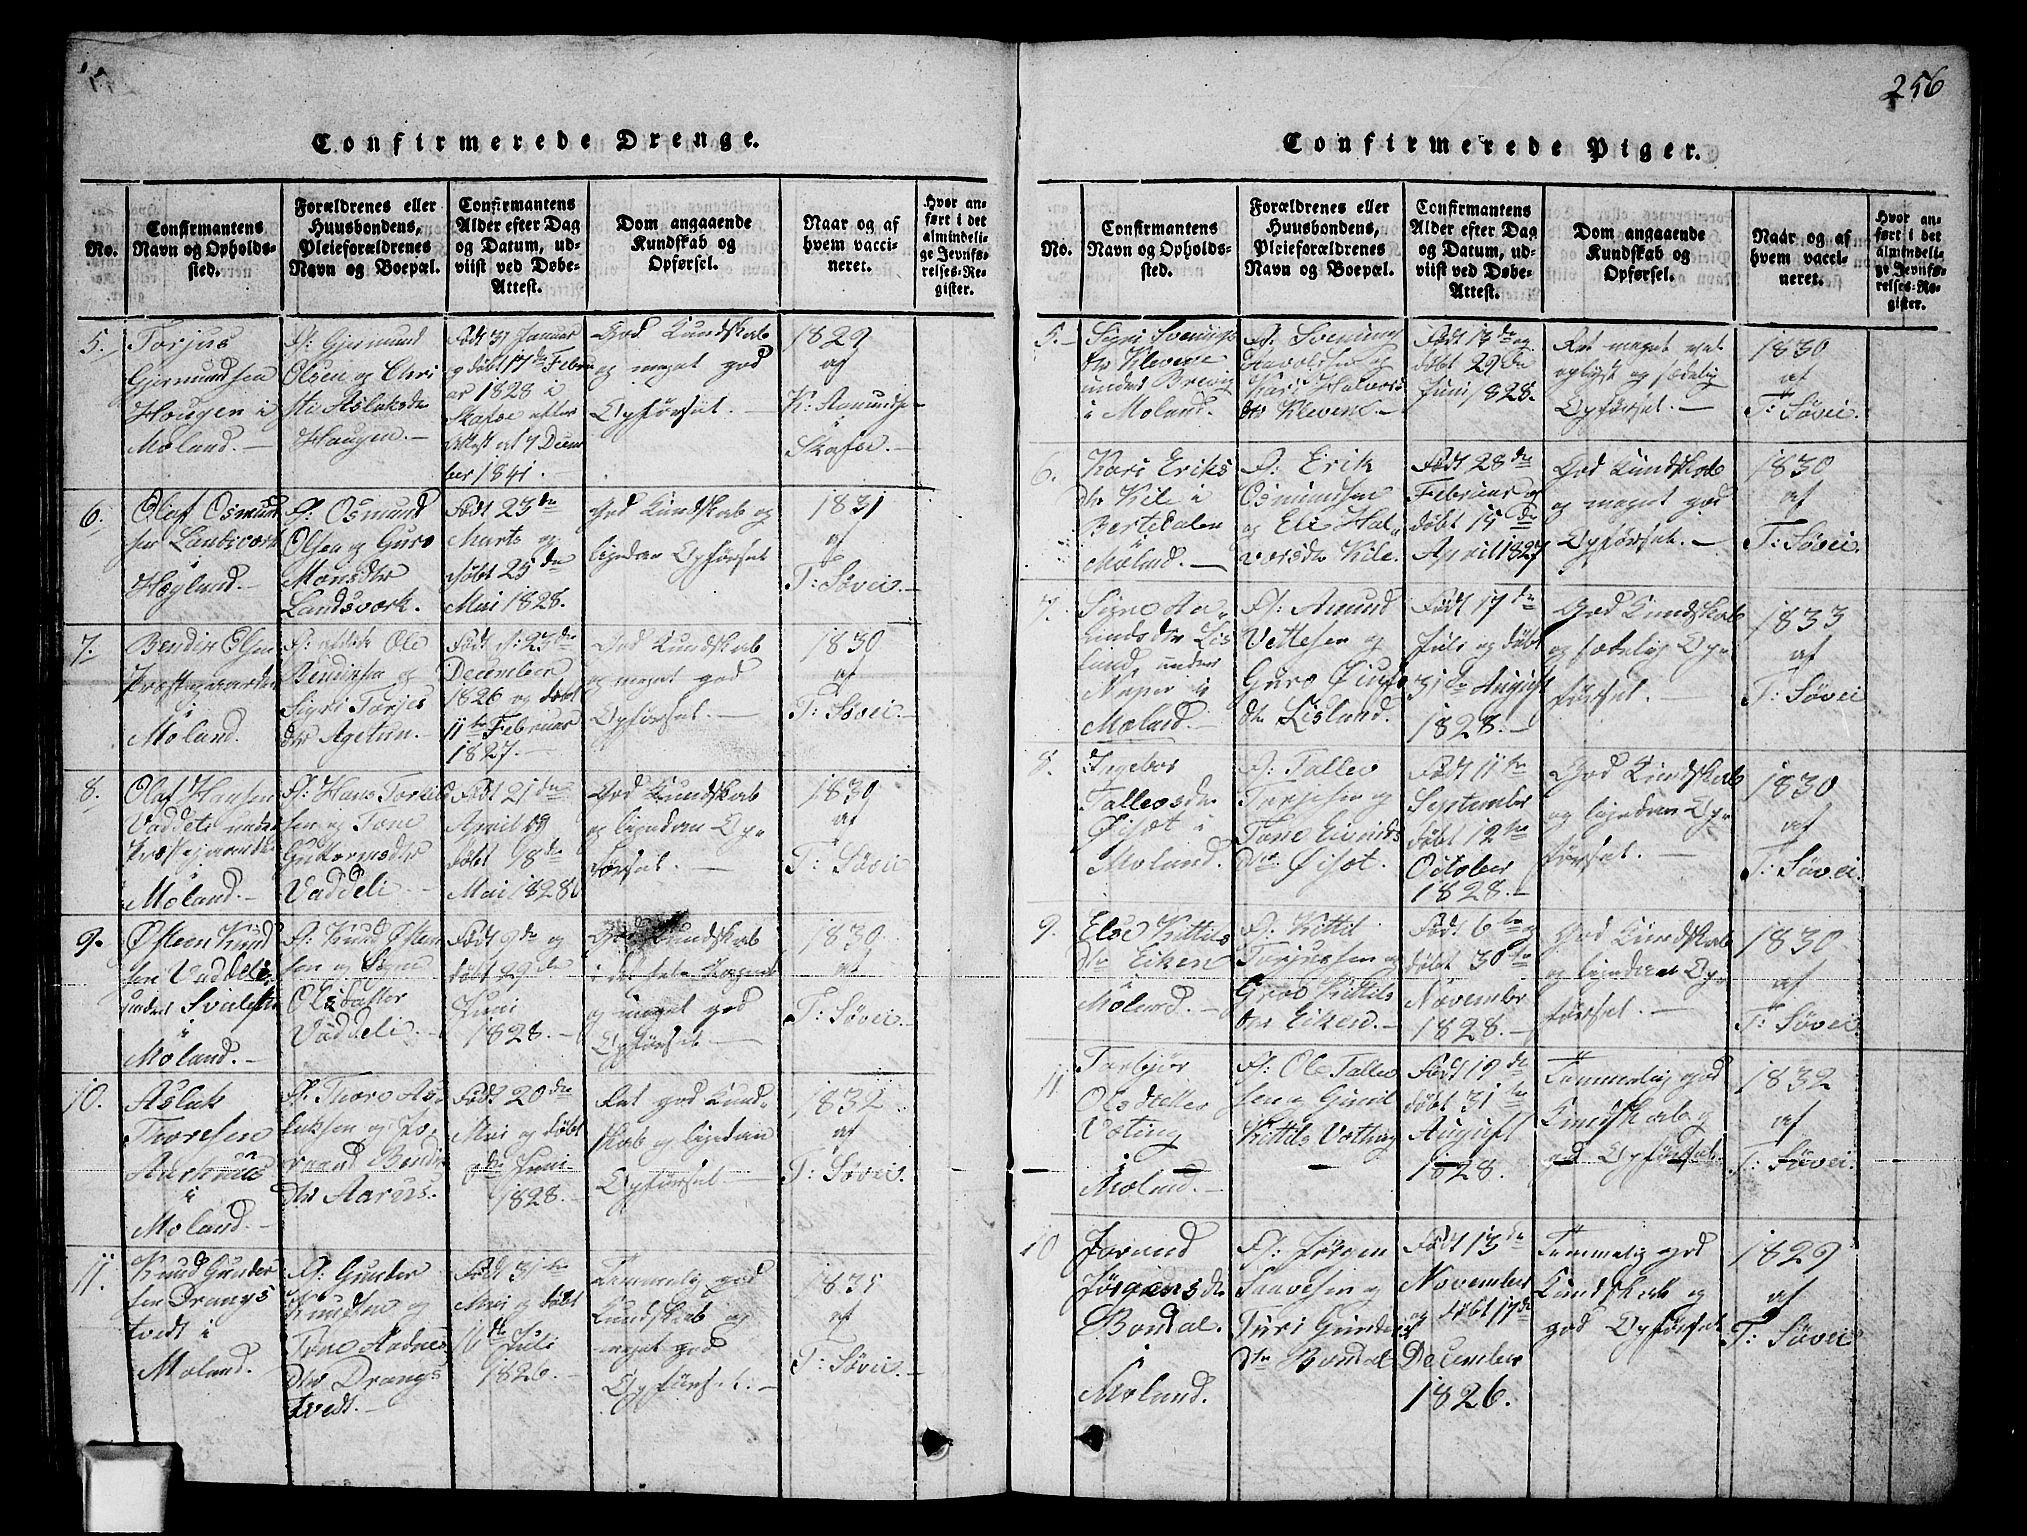 256
Confirmerede Drenge.
No.
Confirmantens Navn og Opholdssted.
Forældrenes eller Huusbondens, Pleieforældrenes Navn og Boepæl.
Confirmantens Alder efter Dag og Datum, udviist ved Døbe-Attest.
Dom angaaende Kundskab og Opførsel.
Naar og af hvem vaccineret.
Hvor anført i det almindelige Jevnførelses-Register.
5.
Torjus
Gjermundsen
Hougen i
Moland. —
F: Gjermund
Olsen og
Aslaksdr
Haugen. —
Født 31 Januar
og døbt 17de Febru
ar 1828 i
Skafse efter
Attest af 7 Decem
ber 1841. —
God Kundskab
og meget god
Opførsel. —
1829
af
K: Aamunds
Skafse. —
6.
Olaf Osmund
sen
Høgland. —
F: Osmund
Olsen og Guro
Monsdtr
Landsværk.
Født 23de
Marts og
døbt 25de
Mai 1828.
God Kundskab og
ligedan Opførsel
1831
af
T: Søvei. —
7.
Bendix Olsen
Præstegaarden
i
Moland.
Ole
Bendixsen og
Sigri Torjus
dtr Agetun. —
Født d: 23de
December
1826 og døbt
11te Februar
1827. —
God Kundskab
og meget god
Opførsel. —
1830
af
T: Søvei. —
8.
Olaf Hansen
Vaddeli under
Præstegaarden
i
Moland. —
F: Hans
sen og Tone
Guttormsdtr
Vaddeli. —
Født 21de
April og
døbt 18de
Mai 1828
God Kundskab
og ligedan Op-
førsel. —
1830
af
T: Søvei
9.
Østeen Knud
sen Vaddeli
under
i
Moland. —
F: Knud Østen
sen og Signe
Olsdatter
Vaddeli. —
Født 9de og
døbt 29de
Juni
1828. —
God Kundskab
og meget god
Opførsel. —
1830
af
T: Søvei. —
10.
Aslak
Thoresen
Aarhuus
i
Moland. —
F: Thore As
laksen og Jo
raand Bendix
dtr Aarus.
Født 20de
Mai og døbt
Juni
1828. —
Ret god Kund-
skab og ligedan
Opførsel. —
1832
af
T: Søvei. —
11.
Knud Gunder
sen Drangs
tvedt i
Moland.
F: Gunder
Knudsen og
Tone Aadnes
dtr Drangs
tvedt. —
Født 31te
Mai og døbt
16de Juli
1826. —
Temmelig god
Kundskab og
meget god
Opførsel. —
1835
af
T: Søvei. —
Confirmerede Piger.
No.
Confirmantens Navn og Opholdssted.
Forældrenes eller Huusbondens, Pleieforældrenes Navn og Boepæl.
Confirmantens Alder efter Dag og Datum, udviist ved Døbe-Attest.
Dom angaaende Kundskab og Opførsel.
Naar og af hvem vaccineret.
Hvor anført i det almindelige Jevnførelses-Register.
5. —
Sigri Svenungs
dtr Klevene
under Brevig
i Moland.
F: Svenung
Haavolsen og
Kari Halvors
dtr Klevene —
Født 13de og
døbt 29de
Juni 1828.
Ret meget vel
oplyst og sædelig
Opførsel. —
1830
af
T: Søvei.
6.
Kari Eriks
dtr Kile i
Bertedalen
i
Moland. —
F: Erik
Osmundsen
og Eli Hal
vorsdtr Kile.
Født 28de
Februar og
døbt 15de
April 1827
God Kundskab
og meget god
Opførsel. —
1830
af
T: Søvei.
7.
Signe
Lis
lund, under
i
Moland. —
F: Amund
Vettesen og
Guro
dtr Lislund.
Født 17de
Juli og døbt
31te August
1828. —
God Kundskab
og sædelig Op-
førsel. —
1833
af
T: Søvei
8.
Ingebor
Tallevsdtr
i
Moland.
F: Tallev
Torjesen og
Tone Eivinds
dtr
Født 11te
September
døbt 12te
October
1828. —
God Kundskab
og ligedan Op-
førsel. —
1830
af
T: Søvei.
9.
Else Kittils
dtr Eiken
i
Moland. —
F: Kittil
Torjussen og
Kittils
dtr Eiken. —
Født 6te og
døbt 30te
November
1828. —
God Kundskab
og ligedan Op-
førsel. —
1830
af
T: Søvei.
11
Torbjør
Olsdtr
Voting
i
Moland. —
F: Ole Tallev
sen og Gunil
Kittils Vothing
—
Født 19de
døbt 31te
August
1828. —
Temmelig god
Kundskab og
god Opførsel.
1832
af
T: Søvei.
10
Jorund
Jørgensdtr
Bondal.
i
Moland.
F: Jørgen
Saavesen og
Turi Gunders
dtr Bondal
Født 13de
November
og døbt 17de
December
1826.
Temmelig god
Kundskab og
god Opførsel.
1829
af
T: Søvei